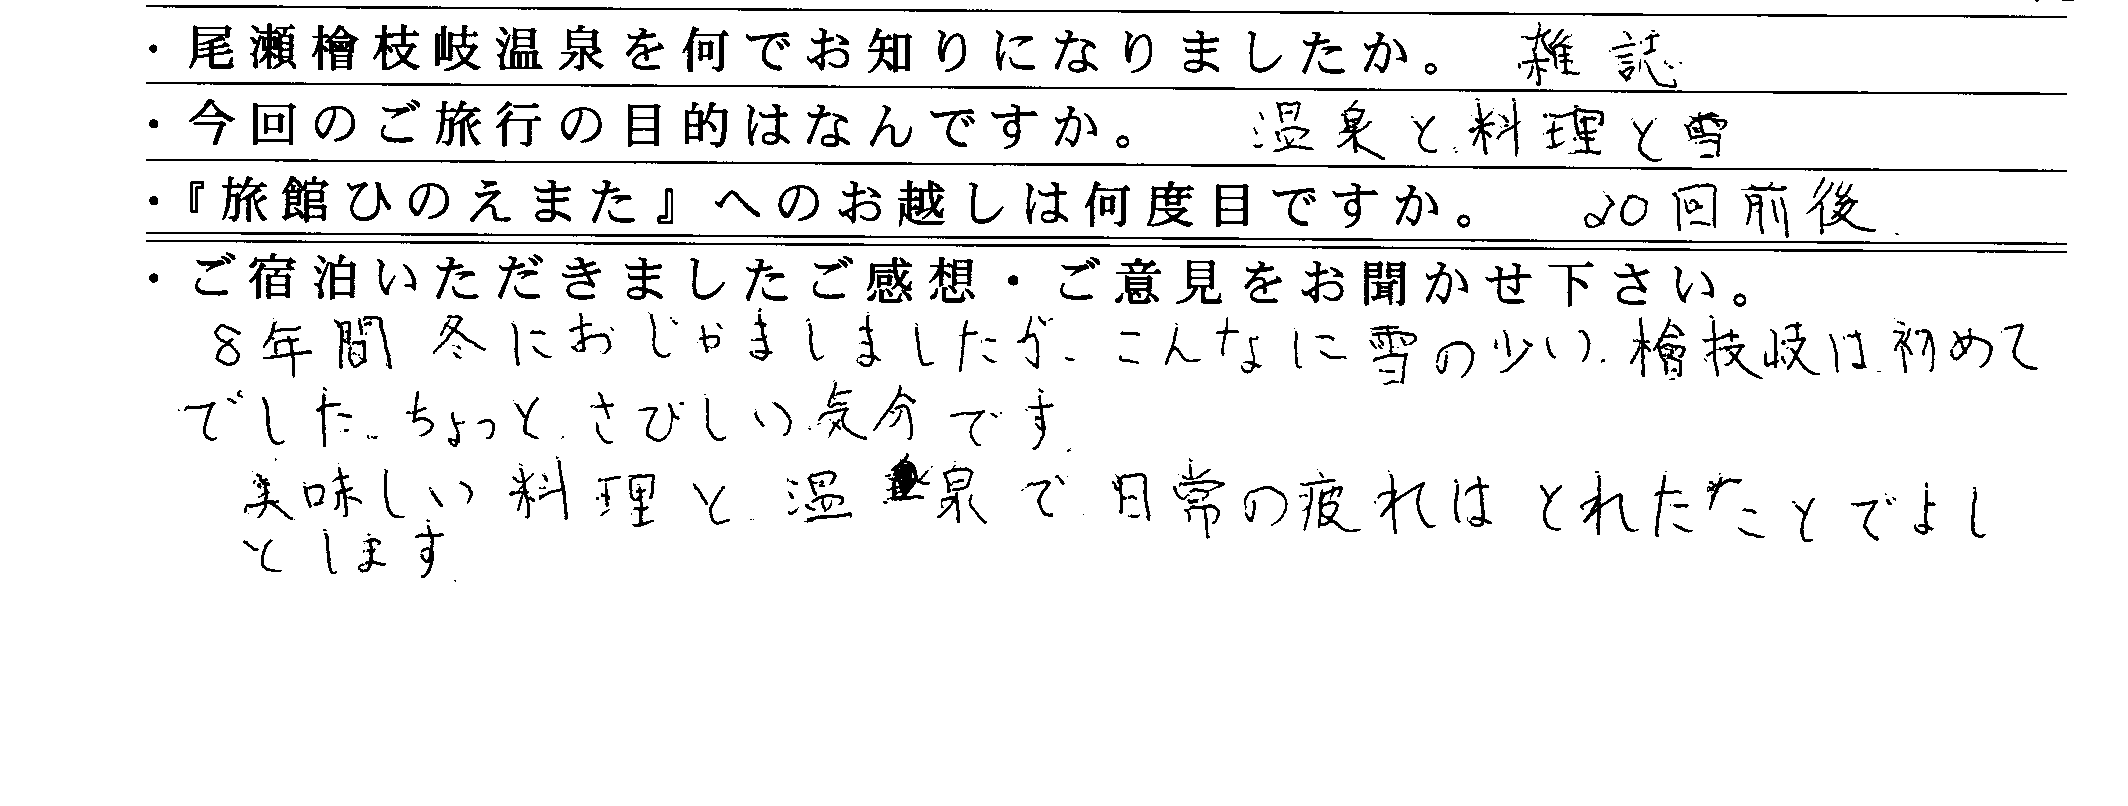 ・尾瀬檜枝岐温泉を何でお知りになりましたか。 雑誌
・今回のご旅行の目的はなんですか。 温泉と料理と雪
・『旅館ひのえまた』へのお越しは何度目ですか。 20回前後.
・ご宿泊いただきましたご感想・ご意見をお聞かせ下さい。
8年間 冬におじゃましましたが、こんなに雪の少い、檜枝岐は初めて
でした。ちょっと さびしい気分です。
美味しい料理と温泉で日常の疲れはとれたことでよし
とします。